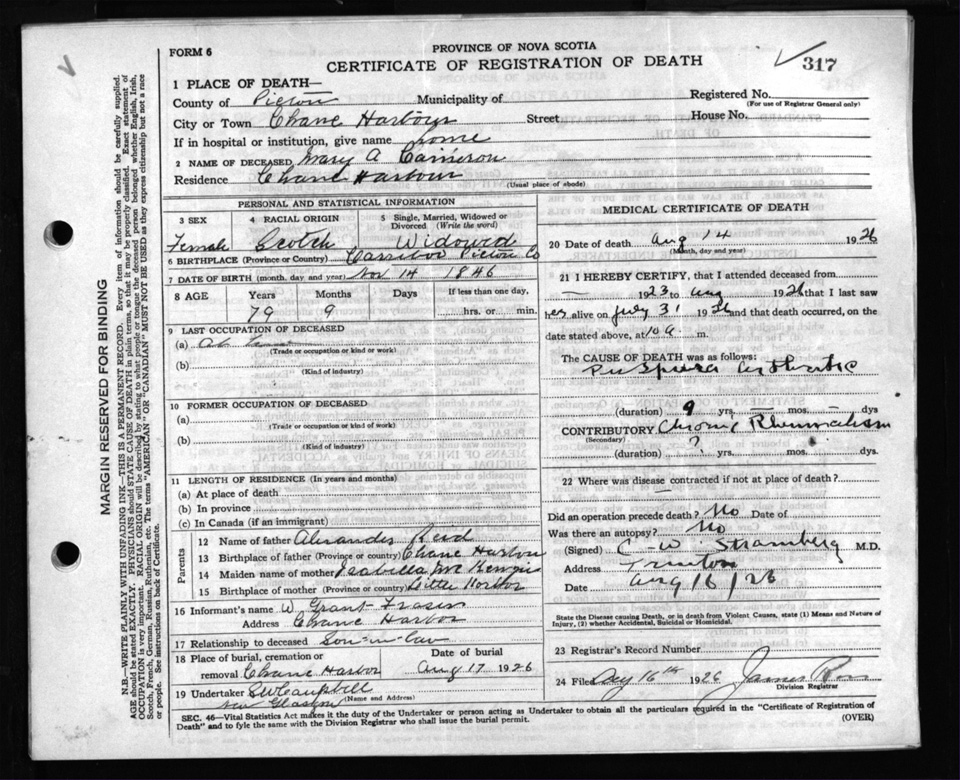 FORM 6
PROVINCE OF NOVA SCOTIA
CERTIFICATE OF REGISTRATION OF DEATH
317
1 PLACE OF DEATH—
County of Pictou Municipality of
Registered No.
(For use of Registrar General only)
City or Town Chance Harbour Street House No.
If in hospital or institution, give name home
2 NAME OF DECEASED Mary A Cameron
Residence Chance Harbour
(Usual place of abode)
PERSONAL AND STATISTICAL INFORMATION
3 SEX 4 RACIAL ORIGIN 5 Single, Married, Widowed or Divorced (Write the word)
Female Scotch Widowed
6 BIRTHPLACE (Province or Country) Carriboo Pictou Co
7 DATE OF BIRTH (month, day and year) Nov 14 1846
8 AGE Years Months Days If less than one day,
79 9 hrs. or min.
9 LAST OCCUPATION OF DECEASED
(a) At
(Trade or occupation or kind or work)
(b)
(Kind of industry)
10 FORMER OCCUPATION OF DECEASED
(a)
(Trade or occupation or kind of work)
(b)
(Kind of industry)
11 LENGTH OF RESIDENCE (In years and months)
(a) At place of death
(b) In province
(c) In Canada (if an immigrant)
Parents
12 Name of father Alexander Reid
13 Birthplace of father (Province or country) Chance Harbour
14 Maiden name of mother Isabella McKenzie
15 Birthplace of mother (Province or country) Little Harbor
16 Informant's name W. Grant Fraser
Address Chance Harbor
17 Relationship to deceased Son-in-law
18 Place of burial, cremation or removal Chance Harbor
Date of burial Aug 17 1926
19 Undertaker SW Campbell
New Glasgow (Name and Address)
MEDICAL CERTIFICATE OF DEATH
20 Date of death Aug 14 1926
(Month, day and year)
21 I HEREBY CERTIFY, that I attended deceased from
— 1923 to Aug 1926 that I last saw
her alive on July 31 1926 and that death occurred, on the
date stated above, at 10 a. m.
The CAUSE OF DEATH was as follows:
(duration) 9 yrs. — mos. — dys
CONTRIBUTORY Chronic Rheumatism
(Secondary)
(duration) ? yrs. mos. dys.
22 Where was disease contracted if not at place of death?
Did an operation precede death? No Date of
Was there an autopsy? No
(Signed) C. W. Stramberg M.D.
Address Trenton
Date Aug 16/26
State the Disease causing Death, or in death from Violent Causes, state (1) Means and Nature of
Injury, (2) whether Accidental, Suicidal or Homicidal.
23 Registrar's Record Number
24 Filed 16th 1926 James Ross
Division Registrar
SEC. 46—Vital Statistics Act makes it the duty of the Undertaker or person acting as Undertaker to obtain all the particulars required in the "Certificate of Registration of
Death" and to fyle the same with the Division Registrar who shall issue the burial permit.
(OVER)
MARGIN RESERVED FOR BINDING
N.B.—WRITE PLAINLY WITH UNFADING INK—THIS IS A PERMANENT RECORD. Every item of information should be carefully supplied.
AGE should be stated EXACTLY. PHYSICIANS should STATE CAUSE OF DEATH in plain terms, so that it may be properly classified. Exact statement of
OCCUPATION is very important. RACIAL ORIGIN will be described by stating to what people or tongue the deceased person belonged whether English, Irish,
Scotch, French, German, Russian, Ruthenian, etc. The terms "AMERICAN" OR "CANADIAN" MUST NOT BE USED as they express citizenship but not a race
or people. See instructions on back of Certificate.